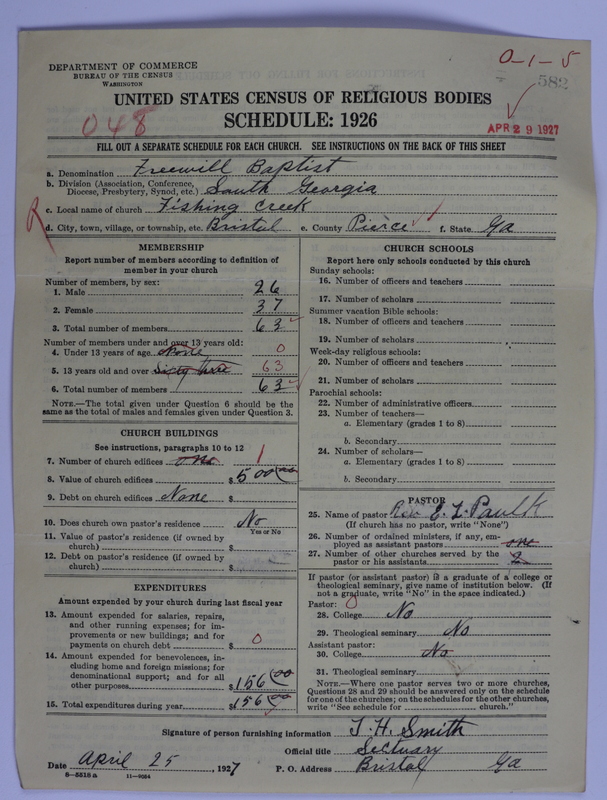 DEPARTMENT OF COMMERCE
BUREAU OF THE CENSUS
WASHINGTON
0-1-5
582
UNITED STATES CENSUS OF RELIGIOUS BODIES
SCHEDULE: 1926
048
APR 29 1927
FILL OUT A SEPARATE SCHEDULE FOR EACH CHURCH. SEE INSTRUCTIONS ON THE BACK OF THIS SHEET
a. Denomination Freewill Baptist
b. Division (Association, Conference, Diocese, Presbytery, Synod, etc.) South Georgia
c. Local name of church Fishing Creek
R
d. City, town, village, or township, etc. Bristol e. County Pierce f. State Ga
MEMBERSHIP
Report number of members according to definition of
member in your church
Number of members, by sex:
1. Male 26
2. Female 37
3. Total number of members 63
Number of members under and over 13 years old:
4. Under 13 years of age None 0
5. 13 years old and over Sixty three 63
6. Total number of members 63
NOTE.—The total given under Question 6 should be
same as the total of males and females given under Question 3.
CHURCH BUILDINGS
See instructions, paragraphs 10 to 12
7. Number of church edifices one 1
8. Value of church edifices $500 00
9. Debt on church edifices None $
10. Does church own pastor's residence No
Yes or No
11. Value of pastor's residence (if owned by
church) $
12. Debt on pastor's residence (if owned by
church) $
EXPENDITURES
Amount expended by your church during last fiscal year
13. Amount expended for salaries, repairs,
and other running expenses; for im-
provements or new buildings; and for
payments on church debt $ 0
14. Amount expended for benevolences, in-
cluding home and foreign missions; for
denominational support; and for all
other purposes $156 00
15. Total expenditures during year $156 00
CHURCH SCHOOLS
Report here only schools conducted by this church
Sunday schools:
16. Number of officers and teachers
17. Number of scholars
Summer vacation Bible schools:
18. Number of officers and teachers
19. Number of scholars
Week-day religious schools:
20. Number of officers and teachers
21. Number of scholars
Parochial schools:
22. Number of administrative officers
23. Number of teachers—
a. Elementary (grades 1 to 8)
b. Secondary
24. Number of scholars—
a. Elementary (grades 1 to 8)
b. Secondary
PASTOR
25. Name of pastor Rev. E. L. Paulk
(If church has no pastor, write "None")
26. Number of ordained ministers, if any, em-
ployed as assistant pastors one
27. Number of other churches served by the
pastor or his assistants 2
If pastor (or assistant pastor) is a graduate of a college or
theological seminary, give name of institution below. (If
not a graduate, write "No" in the space indicated.)
Pastor: 0
28. College No
29. Theological seminary No
Assistant pastor:
30. College No
31. Theological seminary
NOTE.—Where one pastor serves two or more churches,
Questions 28 and 29 should be answered only on the schedule
for one of the churches; on the schedules for the other churches,
write "See schedule for church."
Signature of person furnishing information T. H. Smith
Official title Sectuary
Date April 25, 1927 P. O. Address Bristol Ga
8-5518a 11-9054